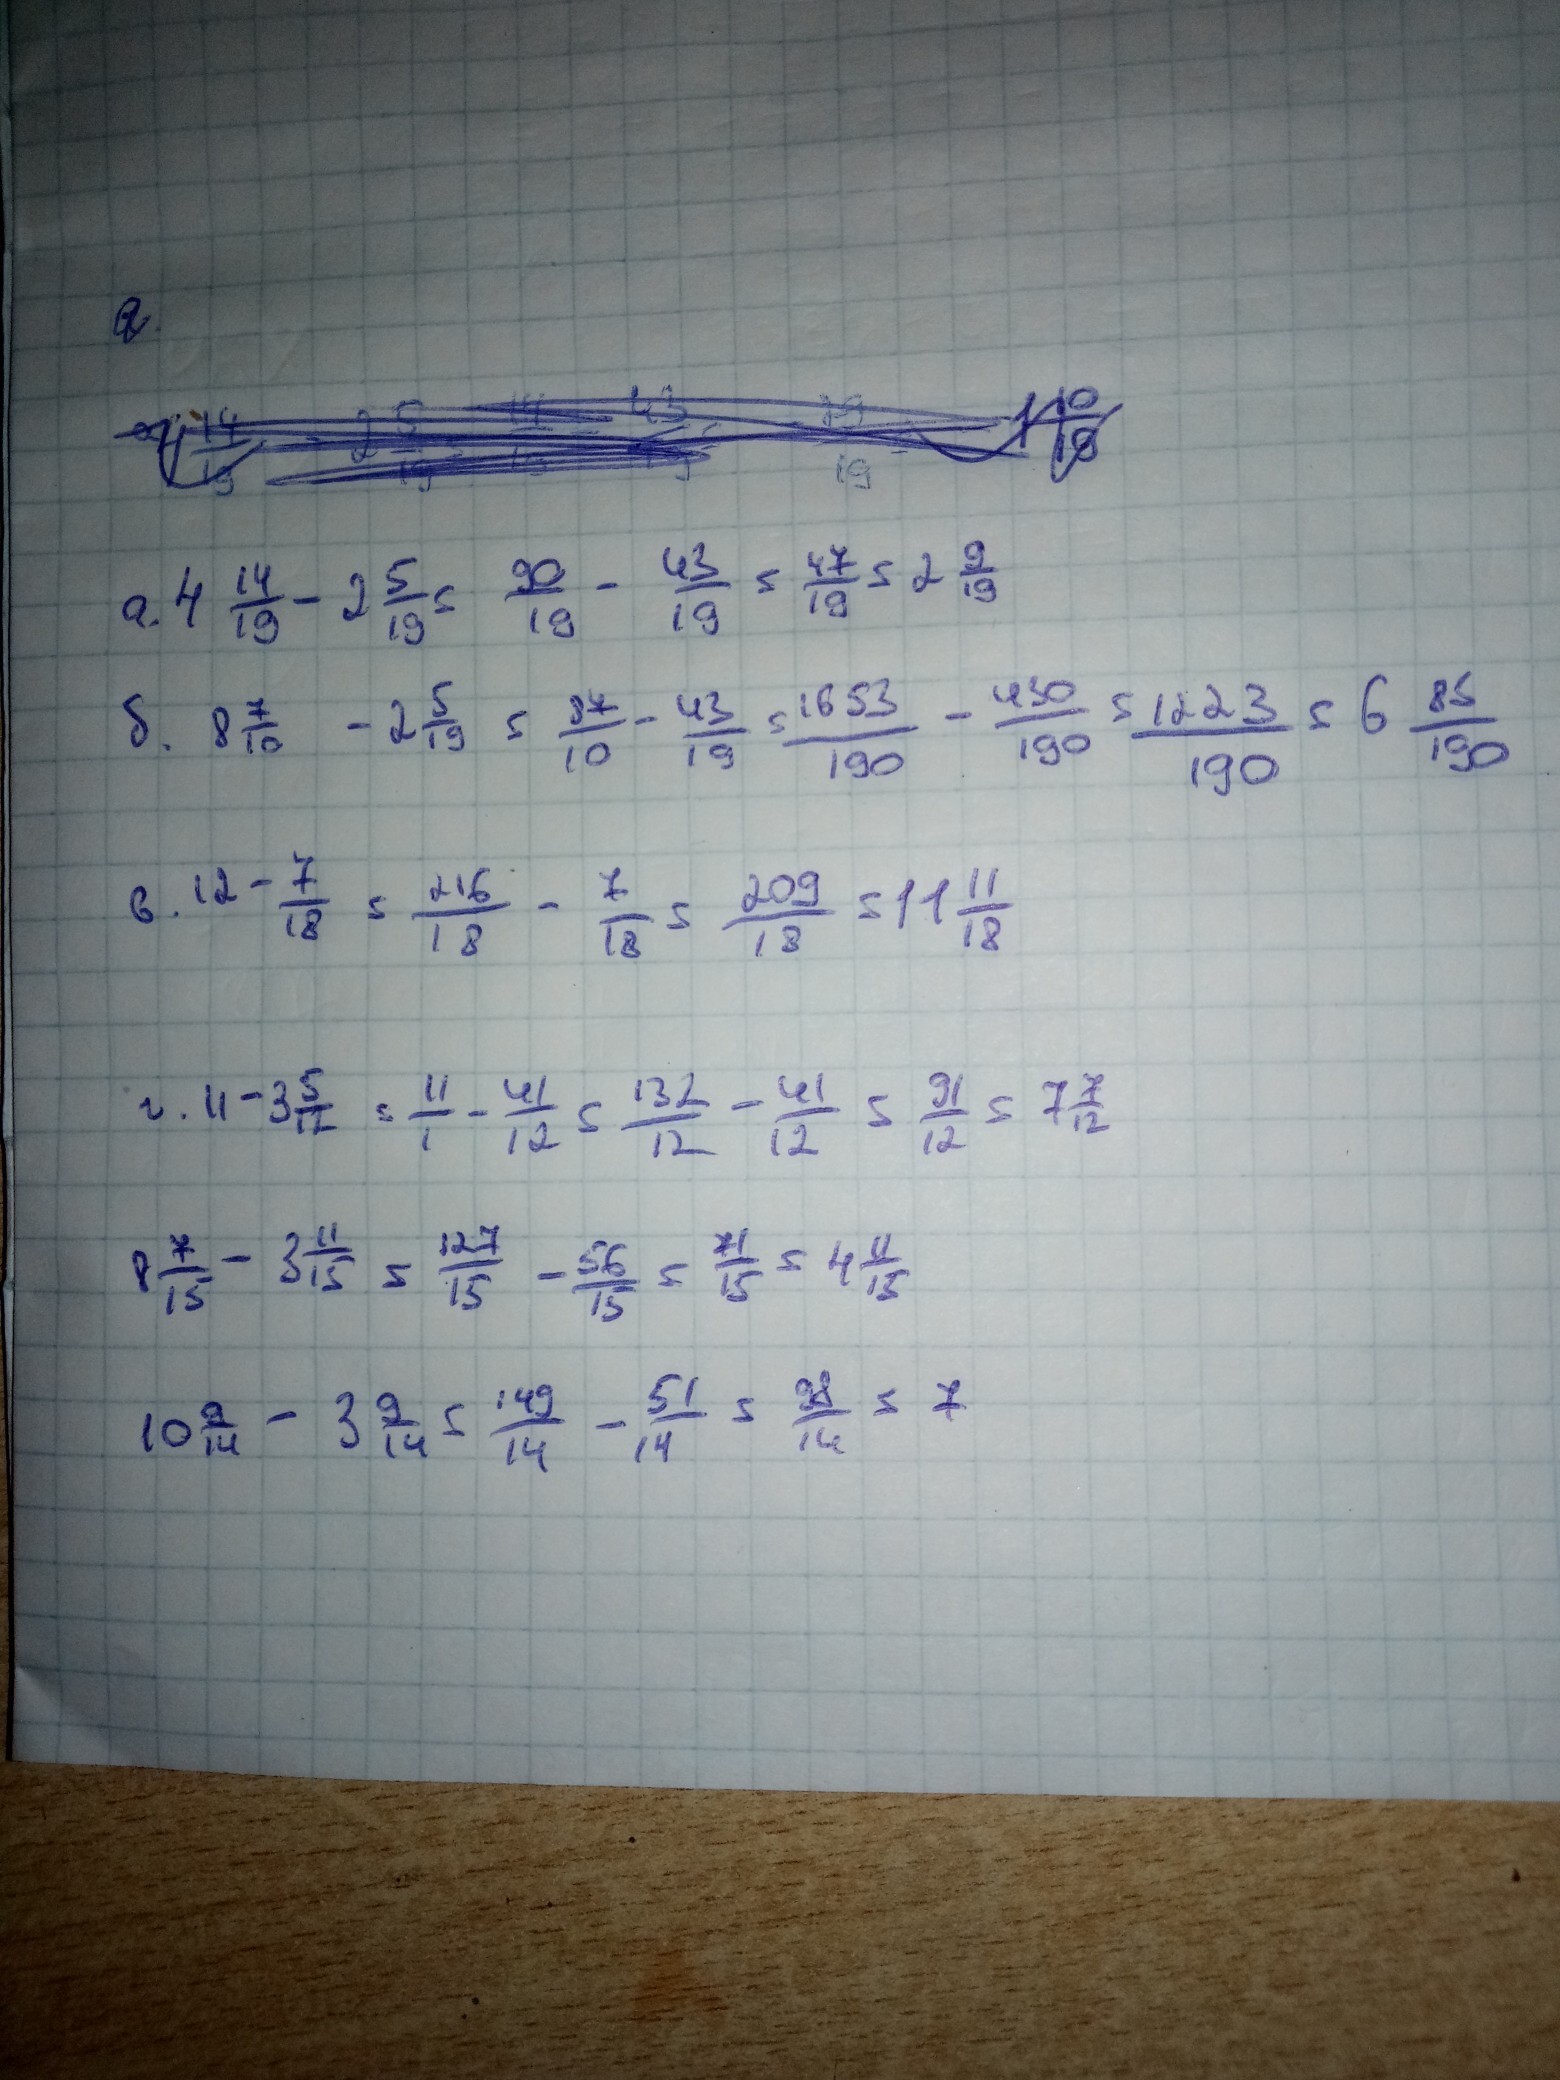 а. 4 14/19 - 2 5/19 = 90/19 - 43/19 = 47/19 = 2 9/19
б. 8 7/10 - 2 5/19 = 87/10 - 43/19 = 1653/190 - 430/190 = 1223/190 = 6 85/190
в. 12 - 7/18 = 216/18 - 7/18 = 209/18 = 11 11/18
г. 11 - 3 5/12 = 11/1 - 41/12 = 132/12 - 41/12 = 91/12 = 7 7/12
8 7/15 - 3 11/15 = 127/15 - 56/15 = 71/15 = 4 11/15
10 9/14 - 3 9/14 = 149/14 - 51/14 = 98/14 = 7